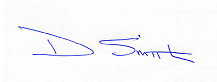 D Smith